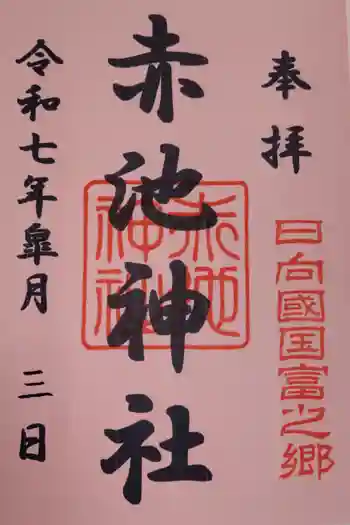 奉拝
日向國国富之郷
赤池神社
赤池神社
令和七年皐月 三日